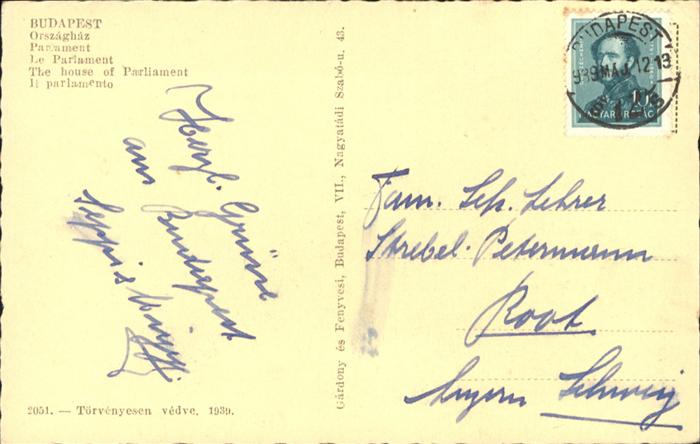 BUDAPEST
Országház
Parlament
Le Parlament
The house of Parliament
Il parlamento
Herzl. Grüsse
aus Budapest
Gárdony és Fenyvesi, Budapest, VII., Nagyatádi Szabó-u. 43.
BUDAPEST
939 MAJ. 12 13
10
MAGYARORSZÁG
Fam. Sek. Lehrer
Strebel-Petermann
Root
Luzern Schweiz
2051. — Törvényesen védve, 1939.